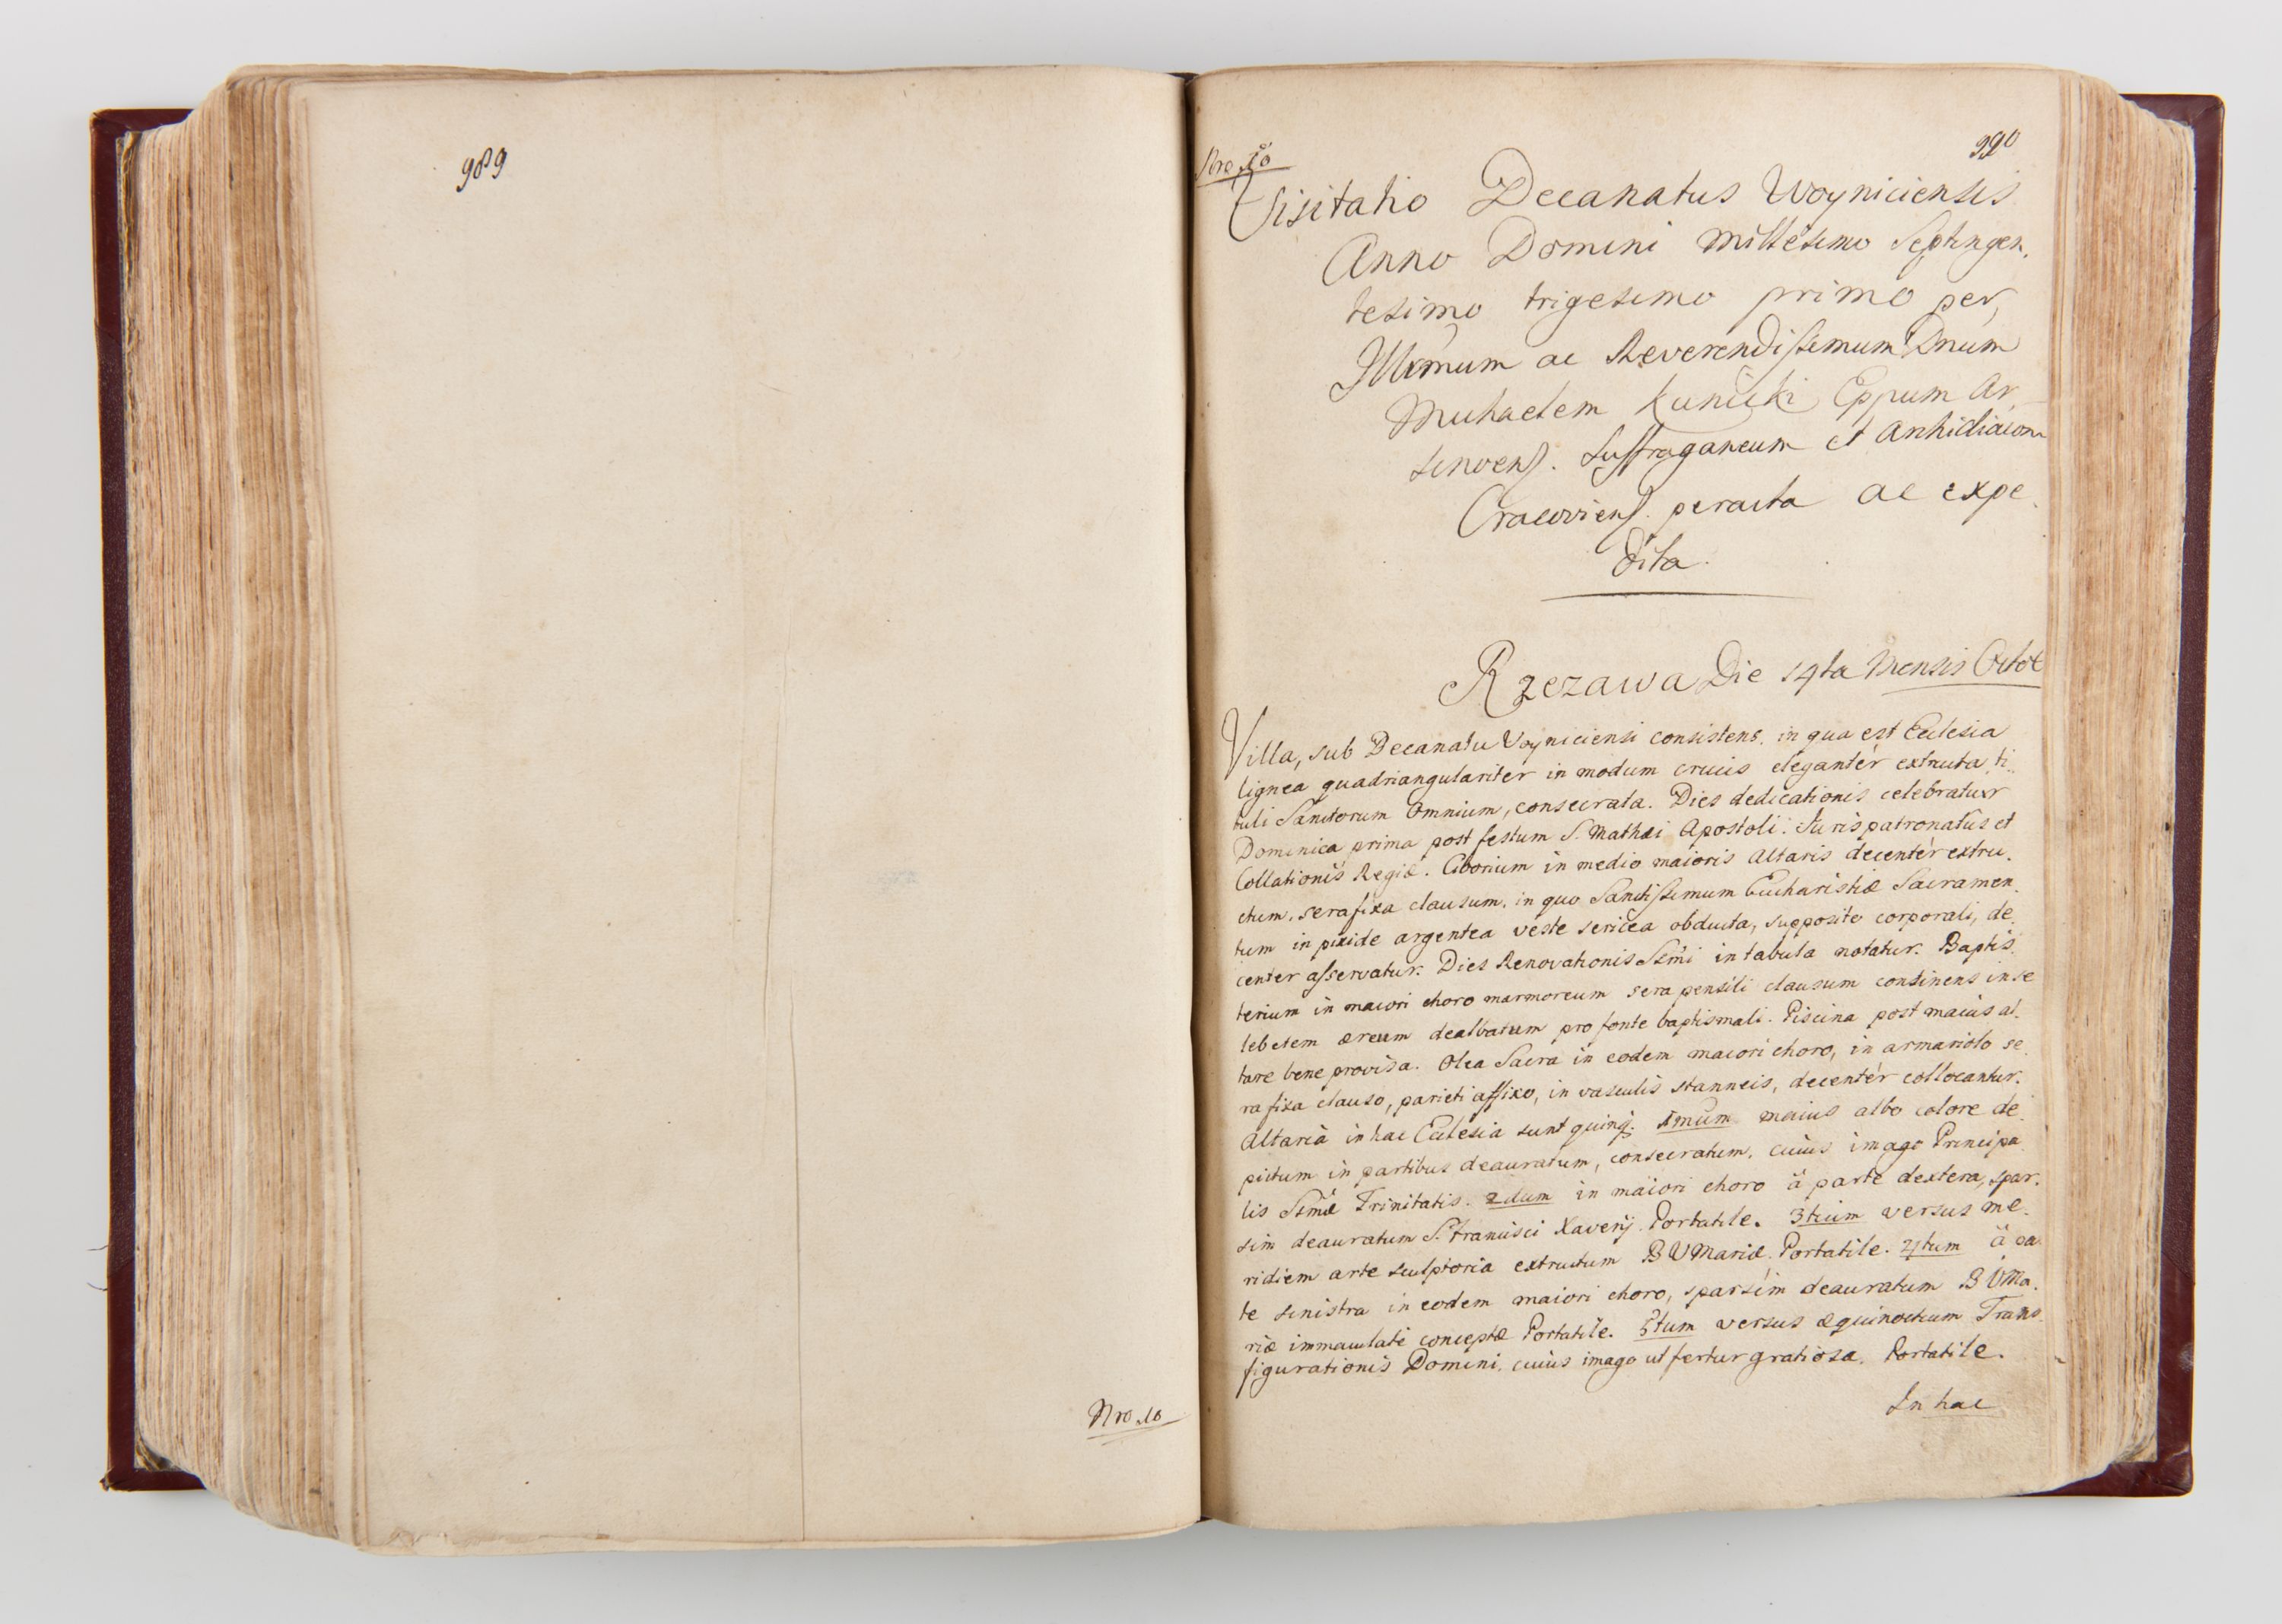 989
Nro. 10
Nro. 10
990
Visitatio Decanatus Woyniciensis
Anno Domini Millesimo Septingen.
tesimo trigesimo primo per
Illmum ac Reverendissimum Dnum
Michaelem Kunicki Eppum Ar
sinoens. Suffraganeum et Archidiacon
Cracoviens. peracta ac expe.
dita.
Rzezawa Die 14ta Mensis Octob
Villa, sub Decanatu Voyniciensi consistens, in qua est Ecclesia
lignea quadriangulariter in modum crucis elegantèr extructa ti..
tuli Sanctorum Omnium, consecrata. Dies dedicationis celebratur
Dominica prima post festum S. Mathæi Apostoli. Juris patronatus et
Collationis Regiæ. Ciborium in medio maioris Altaris decentèr extru.
ctum, sera fixa clausum, in quo Sanctissimum Eucharistiæ Sacramen.
tum in pixide argentea veste sericea obducta, supposito corporali, de.
center asservatur. Dies Renovationis Ssmi in tabula notatur. Baptis.
terium in maiori choro marmoreum sera pensili clausum continens in se
lebetem æreum dealbatum pro fonte baptismali. Piscina post maius al.
tare bene provisa. Olea Sacra in eodem maiori choro, in armariolo se.
ra fixa clauso, parieti affixo, in vasculis stanneis, decentèr collocantur.
Altaria in hac Ecclesia sunt quinq. 1mum maius albo colore de.
pictum in partibus deauratum, consecratum, cuius imago Principa
lis Ssmæ Trinitatis. 2dum in maiori choro à parte dextera, spar.
sim deauratum S. Francisci Xaverij. Portatile. 3tium versus me.
ridiem arte sculptoria extructum B V Mariæ. Portatile. 4tum à pa
te sinistra in eodem maiori choro, sparsim deauratum B V Ma.
riæ immaculatè conceptæ Portatile. 5tum versus æquinoctium Trans.
figurationis Domini, cuius imago ut fertur gratiosa. Portatile.
In hac